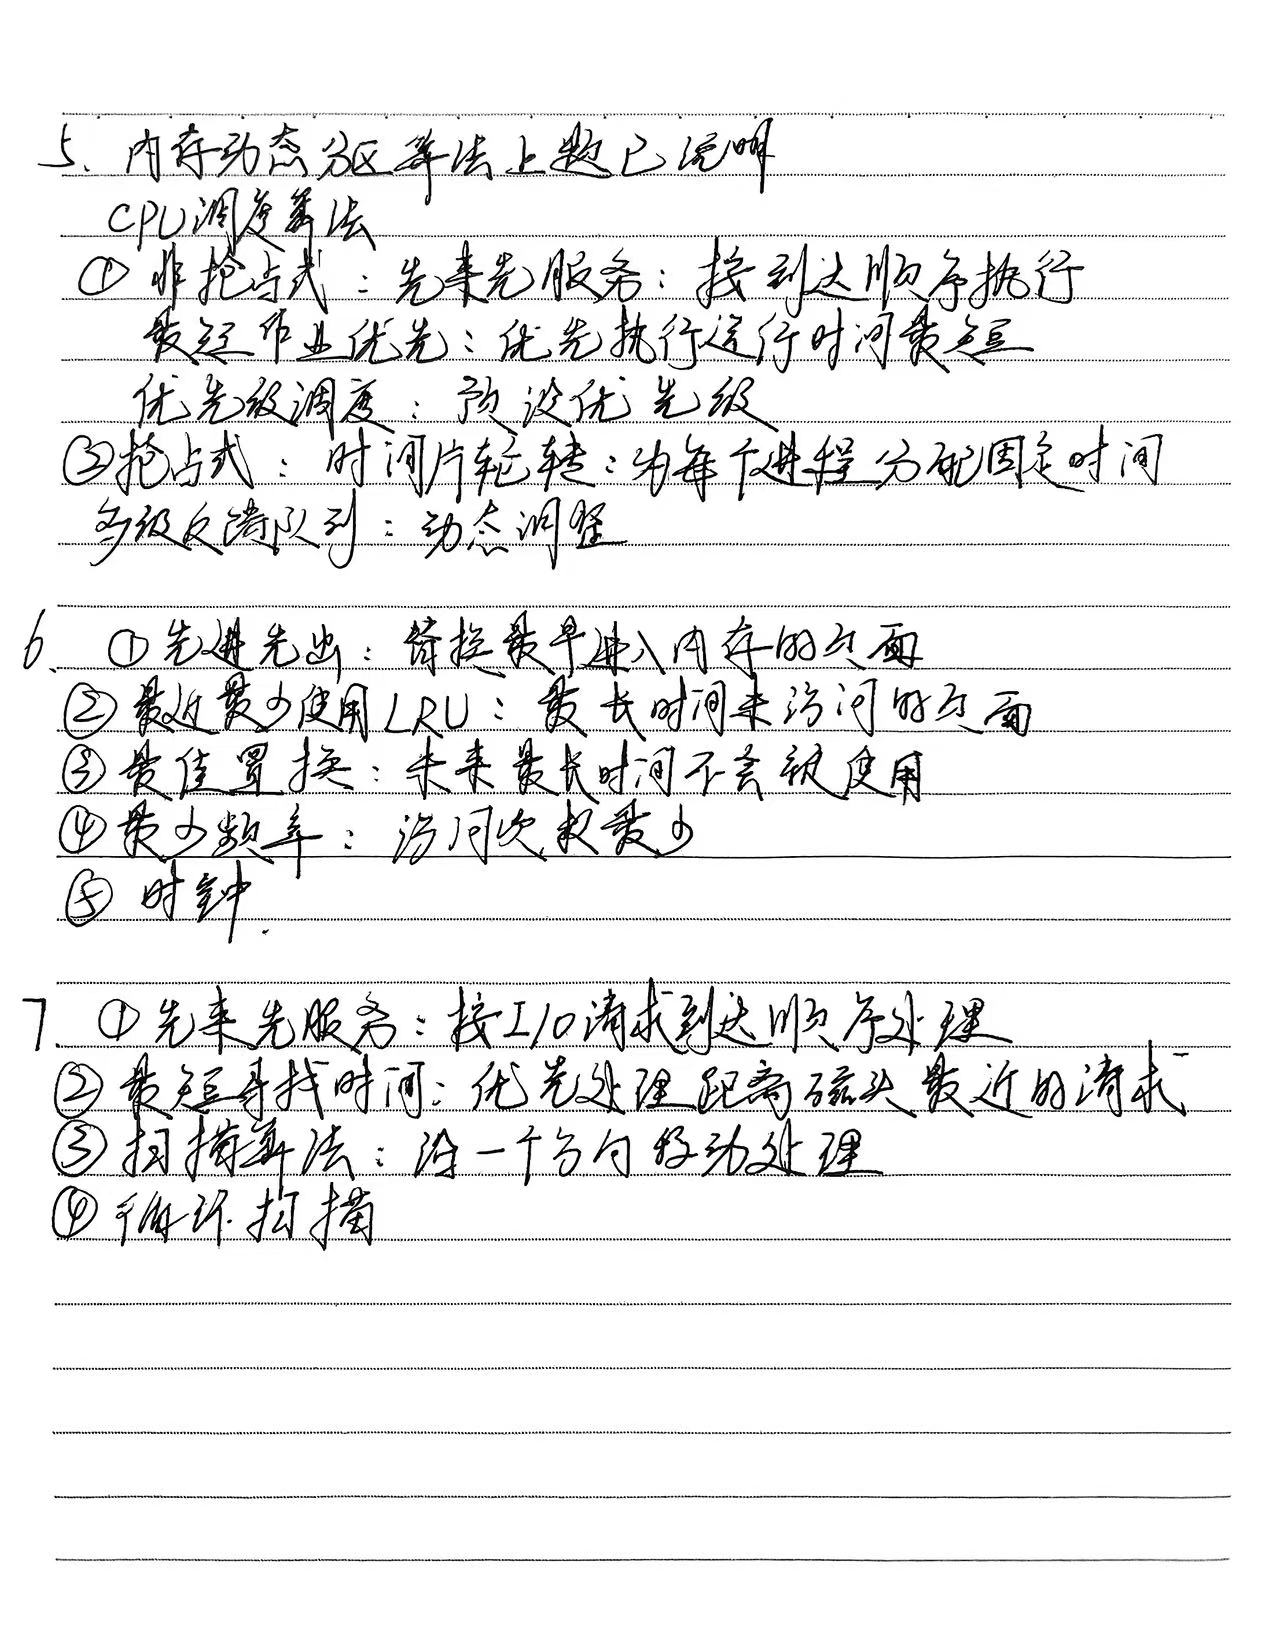 5. 内存动态分区算法上题已说明
CPU调度算法
① 非抢占式：先来先服务：按到达顺序执行
最短作业优先：优先执行运行时间最短
优先级调度：预设优先级
②抢占式：时间片轮转：为每个进程分配固定时间
多级反馈队列：动态调整
6. ①先进先出：替换最早进入内存的页面
②最近最少使用LRU：最长时间未访问的页面
③最佳置换：未来最长时间不会被使用
④最少频率：访问次数最少
⑤时钟.
7. ①先来先服务：按I/O请求到达顺序处理
②最短寻找时间：优先处理距离磁头最近的请求
③扫描算法：沿一个方向移动处理
④循环扫描